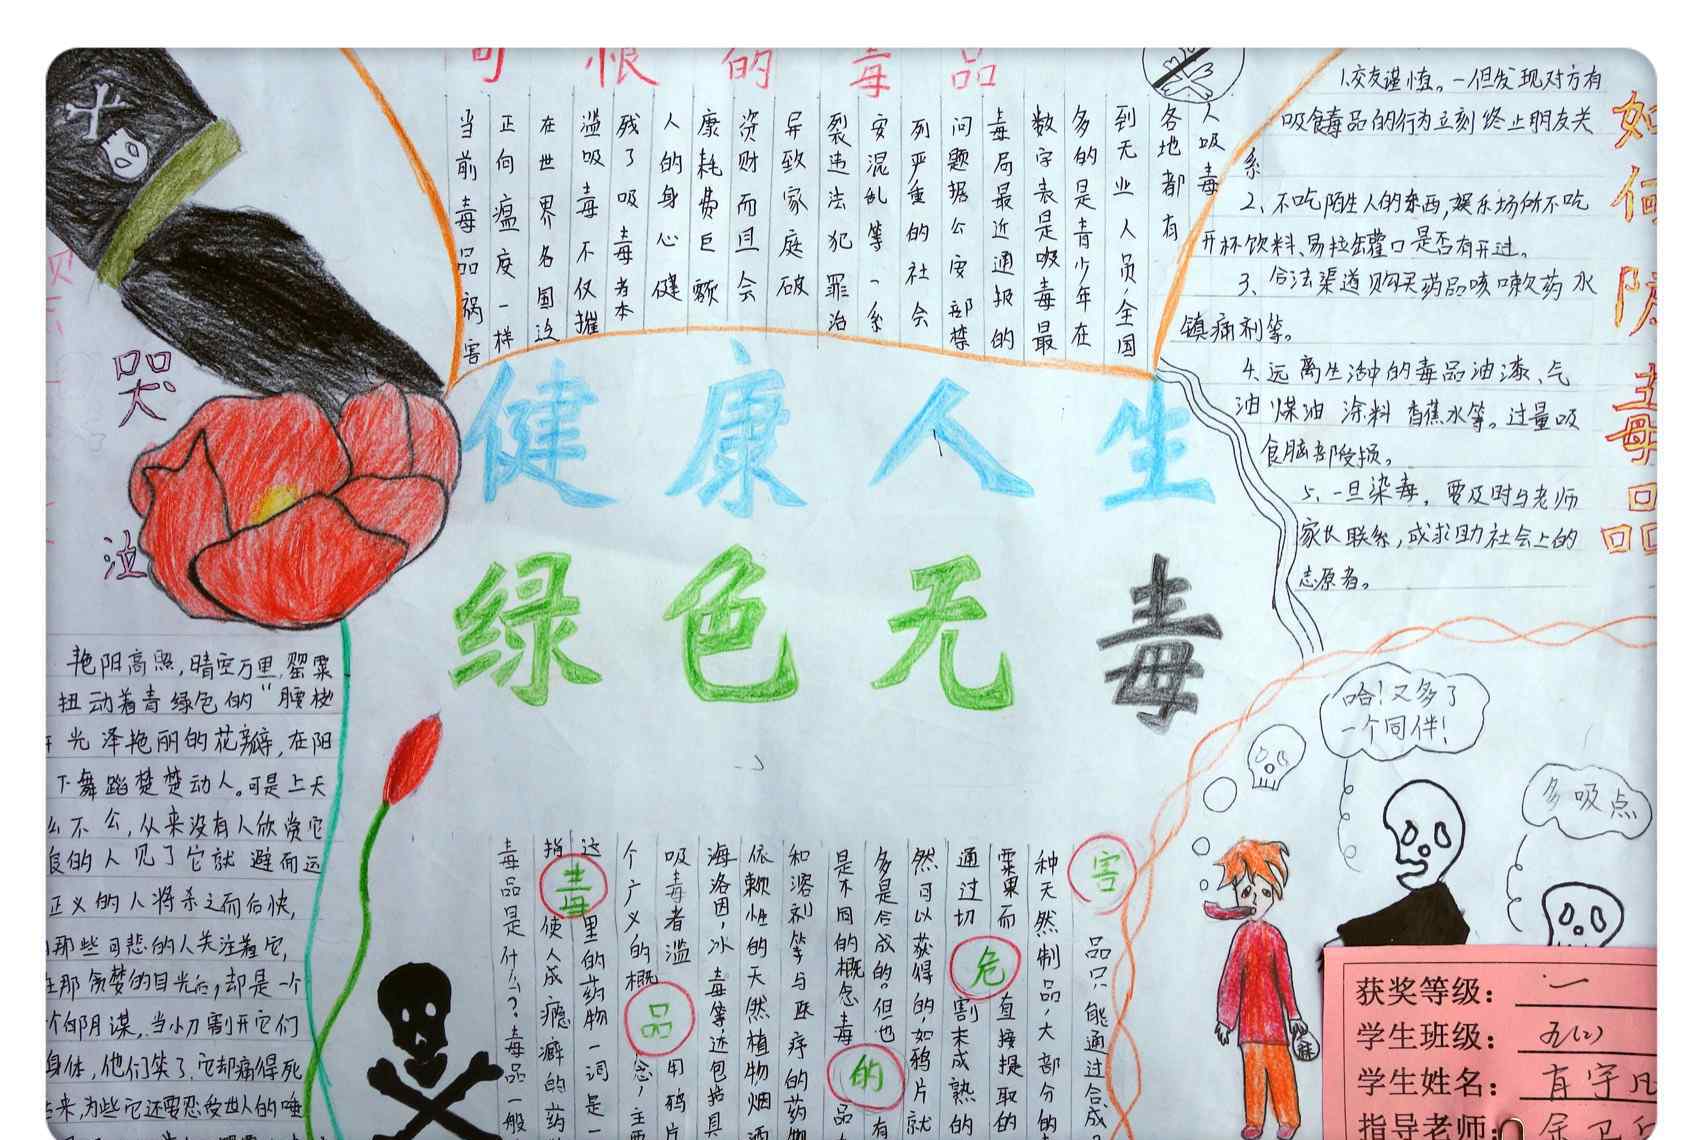 可恨的毒品
当前毒品祸害
正向瘟疫一样
在世界各国泛
滥吸毒不仅摧
残了吸毒者本
人的身心健
康耗费巨额
资财而且会
导致家庭破
裂违法犯罪治
安混乱等一系
列严重的社会
问题据公安部禁
毒局最近通报的
数字表是吸毒最
多的是青少年在
到无业人员,全国
各地都有
人吸毒
如何防毒品
1.交友谨慎。一但发现对方有
吸食毒品的行为立刻终止朋友关
系
2、不吃陌生人的东西,娱乐场所不吃
开杯饮料、易拉罐口是否有开过。
3、合法渠道购买药品咳嗽药水
镇痛剂等。
4.远离生活中的毒品油漆、气
油煤油涂料香蕉水等。过量吸
食脑部受损。
5、一旦染毒,要及时与老师
家长联系,或求助社会上的
志愿者。
健康人生
绿色无毒
哭泣
艳阳高照,晴空万里,罂粟
扭动着青绿色的"腰枝
光泽艳丽的花瓣,在阳
下舞蹈楚楚动人。可是上天
不公,从来没有人欣赏它
的人见了它就避而远
正义的人将杀之而后快,
那些可悲的人关注着它,
那贪婪的目光后,却是一个
阴谋,当小刀割开它们
身体,他们笑了,它却痛得死
来,为些它还要忍受世人的唾
毒品的危害
毒品是什么?毒品一般
指使人成瘾癖的药
这里的药物一词是一
个广义的概念,主要
吸毒者滥用鸦片
海洛因,冰毒等,还包括具
依赖性的天然植物烟酒
和溶剂等与医疗的药物
是不同的概念毒品
多是合成的。但也有
然可以获得的如鸦片就
通过切割未成熟的
粟果而直接提取的
种天然制品,大部分的
品只能通过合成
哈!又多了
一个同伴!
多吸点
获奖等级：一
学生班级：五(2)
学生姓名：
指导老师：